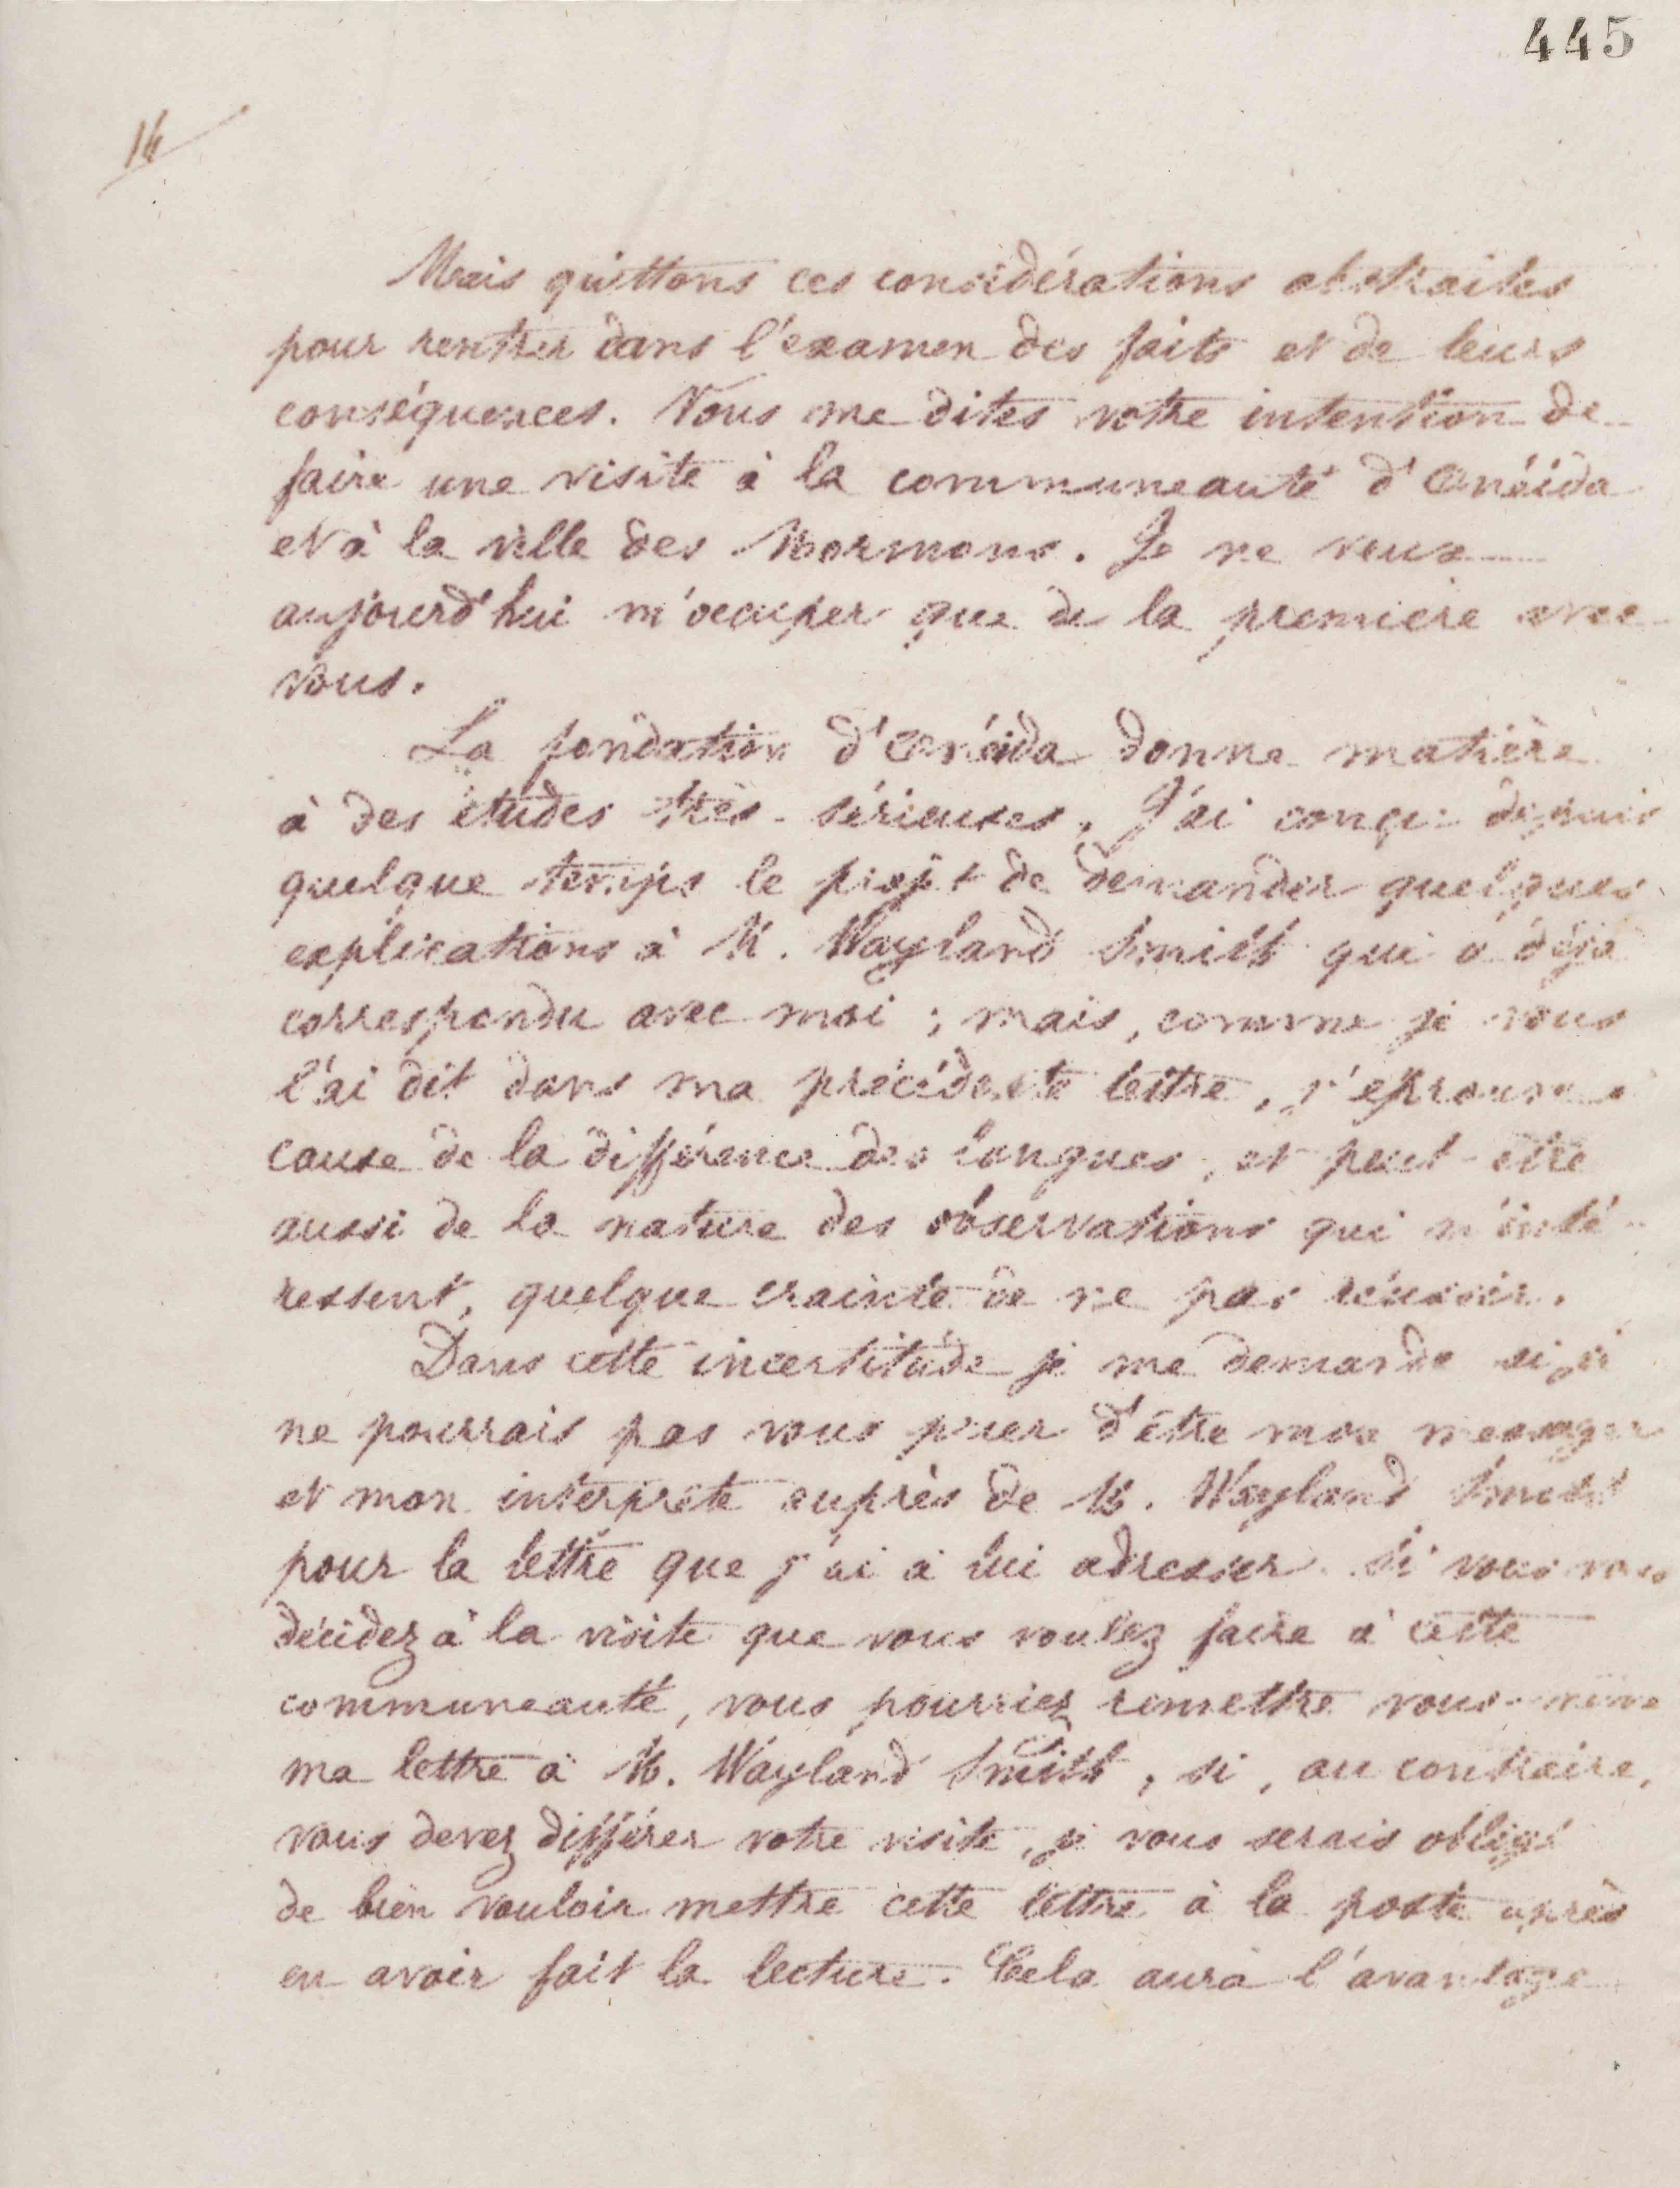 445
14
Mais quittons ces considérations abstraites
pour rentrer dans l'examen des faits et de leurs
conséquences. Vous me dites votre intention de
faire une visite à la communeauté d'Onéida
et à la ville des Mormons. Je ne veux
aujourd'hui m'occuper que de la première avec
vous.
La fondation d'Onéida donne matière
à des études très-sérieuses. J'ai conçu depuis
quelque temps le projet de demander quelques
explications à M. Wayland Smith qui a déjà
correspondu avec moi ; mais, comme je vous
l'ai dit dans ma précédente lettre, j'éprouve à
cause de la différence des langues, et peut-être
aussi de la nature des observations qui m'inté-
ressent, quelque crainte de ne pas réussir.
Dans cette incertitude je me demande si je
ne pourrais pas vous prier d'être mon messager
et mon interprète auprès de M. Wayland Smith
pour la lettre que j'ai à lui adresser. Si vous vous
décidez à la visite que vous voulez faire à cette
communeauté, vous pourriez remettre vous-même
ma lettre à M. Wayland Smith, si, au contraire,
vous devez différer votre visite, je vous serais obligé
de bien vouloir mettre cette lettre à la poste après
en avoir fait la lecture. Cela aura l'avantage